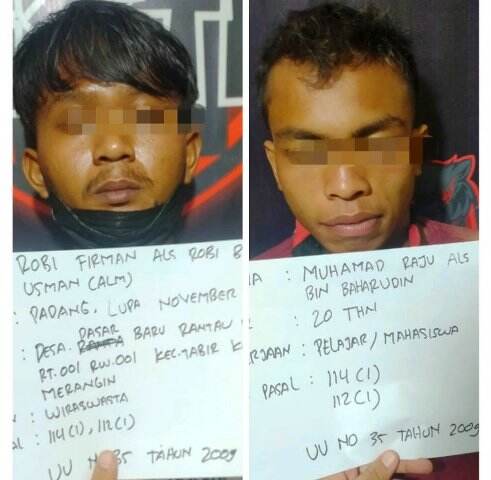 ROBI FIRMAN ALS ROBI B
USMAN (ALM)
: PADANG, LUPA NOVEMBER
: DESA. DASAR BARU RANTAU
RT.001 RW.001 KEC.TABIR K
MERANGIN
: WIRASWASTA
AL : 114(1), 112(1)
UU NO 35 TAHUN 2009
MA : MUHAMAD RAJU ALS
BIN BAHARUDIN
: 20 THN
ERJAAN : PELAJAR/MAHASISWA
PASAL : 114(1)
112(1)
UU NO 35 TAHUN 2009